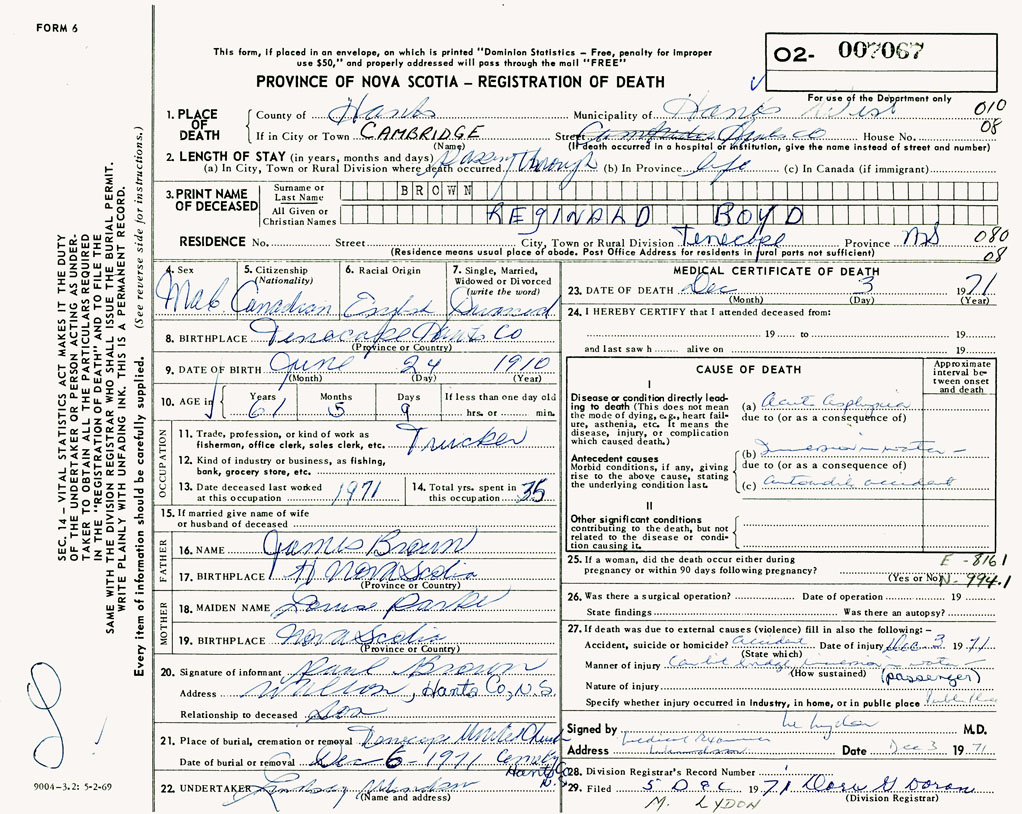 FORM 6
This form, if placed in an envelope, on which is printed "Dominion Statistics – Free, penalty for improper
use $50," and properly addressed will pass through the mail "FREE"
PROVINCE OF NOVA SCOTIA – REGISTRATION OF DEATH
O2- 007067
For use of the Department only
1. PLACE OF DEATH
County of Hants Municipality of Hants West 010
If in City or Town CAMBRIDGE Street Hants Co House No. 08
(Name) (If death occurred in a hospital or institution, give the name instead of street and number)
2. LENGTH OF STAY (in years, months and days)
(a) In City, Town or Rural Division where death occurred Passing Through (b) In Province life (c) In Canada (if immigrant)
3. PRINT NAME OF DECEASED
Surname or Last Name BROWN
All Given or Christian Names REGINALD BOYD
RESIDENCE No. Street City, Town or Rural Division Tenecape Province NS 080
(Residence means usual place of abode. Post Office Address for residents in rural parts not sufficient) 08
4. Sex 5. Citizenship (Nationality) 6. Racial Origin 7. Single, Married, Widowed or Divorced (write the word)
Male Canadian English
8. BIRTHPLACE Tenecape Hants Co
(Province or Country)
9. DATE OF BIRTH June 24 1910
(Month) (Day) (Year)
10. AGE in Years Months Days If less than one day old
61 5 9 hrs. or min.
OCCUPATION
11. Trade, profession, or kind of work as
fisherman, office clerk, sales clerk, etc. Trucker
12. Kind of industry or business, as fishing,
bank, grocery store, etc.
13. Date deceased last worked
at this occupation 1971
14. Total yrs. spent in
this occupation 35
15. If married give name of wife
or husband of deceased
FATHER
16. NAME James Brown
17. BIRTHPLACE Nova Scotia
(Province or Country)
MOTHER
18. MAIDEN NAME Louise Parke
19. BIRTHPLACE Nova Scotia
(Province or Country)
20. Signature of informant Paul Brown
Address , Hants Co, N.S.
Relationship to deceased Son
21. Place of burial, cremation or removal Tenecape United Church
Date of burial or removal Dec 6 - 1971 Hants Co N.S.
22. UNDERTAKER Lindsay Windsor
(Name and address)
MEDICAL CERTIFICATE OF DEATH
23. DATE OF DEATH Dec 3 1971
(Month) (Day) (Year)
24. I HEREBY CERTIFY that I attended deceased from:
19 to 19
and last saw h alive on 19
CAUSE OF DEATH
Approximate interval between onset and death
I
Disease or condition directly leading to death (This does not
mean the mode of dying, e.g., heart failure, asthenia, etc. It means the
disease, injury, or complication
which caused death.)
(a) Acute asphyxia
due to (or as a consequence of)
Antecedent causes
Morbid conditions, if any, giving
rise to the above cause, stating
the underlying condition last.
(b) Immersion in water –
due to (or as a consequence of)
(c) automobile accident
II
Other significant conditions
contributing to the death, but not
related to the disease or condition
causing it.
25. If a woman, did the death occur either during
pregnancy or within 90 days following pregnancy?
(Yes or No)
E - 816 1
N - 994.1
26. Was there a surgical operation? Date of operation 19
State findings Was there an autopsy?
27. If death was due to external causes (violence) fill in also the following: –
Accident, suicide or homicide? accident Date of injury Dec 3 1971
(State which)
Manner of injury immersion water –
(How sustained) (passenger)
Nature of injury
Specify whether injury occurred in industry, in home, or in public place Public Place
Signed by M.D.
Address Medical Examiner Date Dec 3 1971
28. Division Registrar's Record Number
29. Filed 5 Dec 1971
(Division Registrar)
M. LYDON
SEC. 14 – VITAL STATISTICS ACT MAKES IT THE DUTY
OF THE UNDERTAKER OR PERSON ACTING AS UNDER-
TAKER TO OBTAIN ALL THE PARTICULARS REQUIRED
IN THE "REGISTRATION OF DEATH" AND TO FILE THE
SAME WITH THE DIVISION REGISTRAR WHO SHALL ISSUE THE BURIAL PERMIT.
WRITE PLAINLY WITH UNFADING INK. THIS IS A PERMANENT RECORD.
Every item of information should be carefully supplied. (See reverse side for instructions.)
9004-3.2: 5-2-69